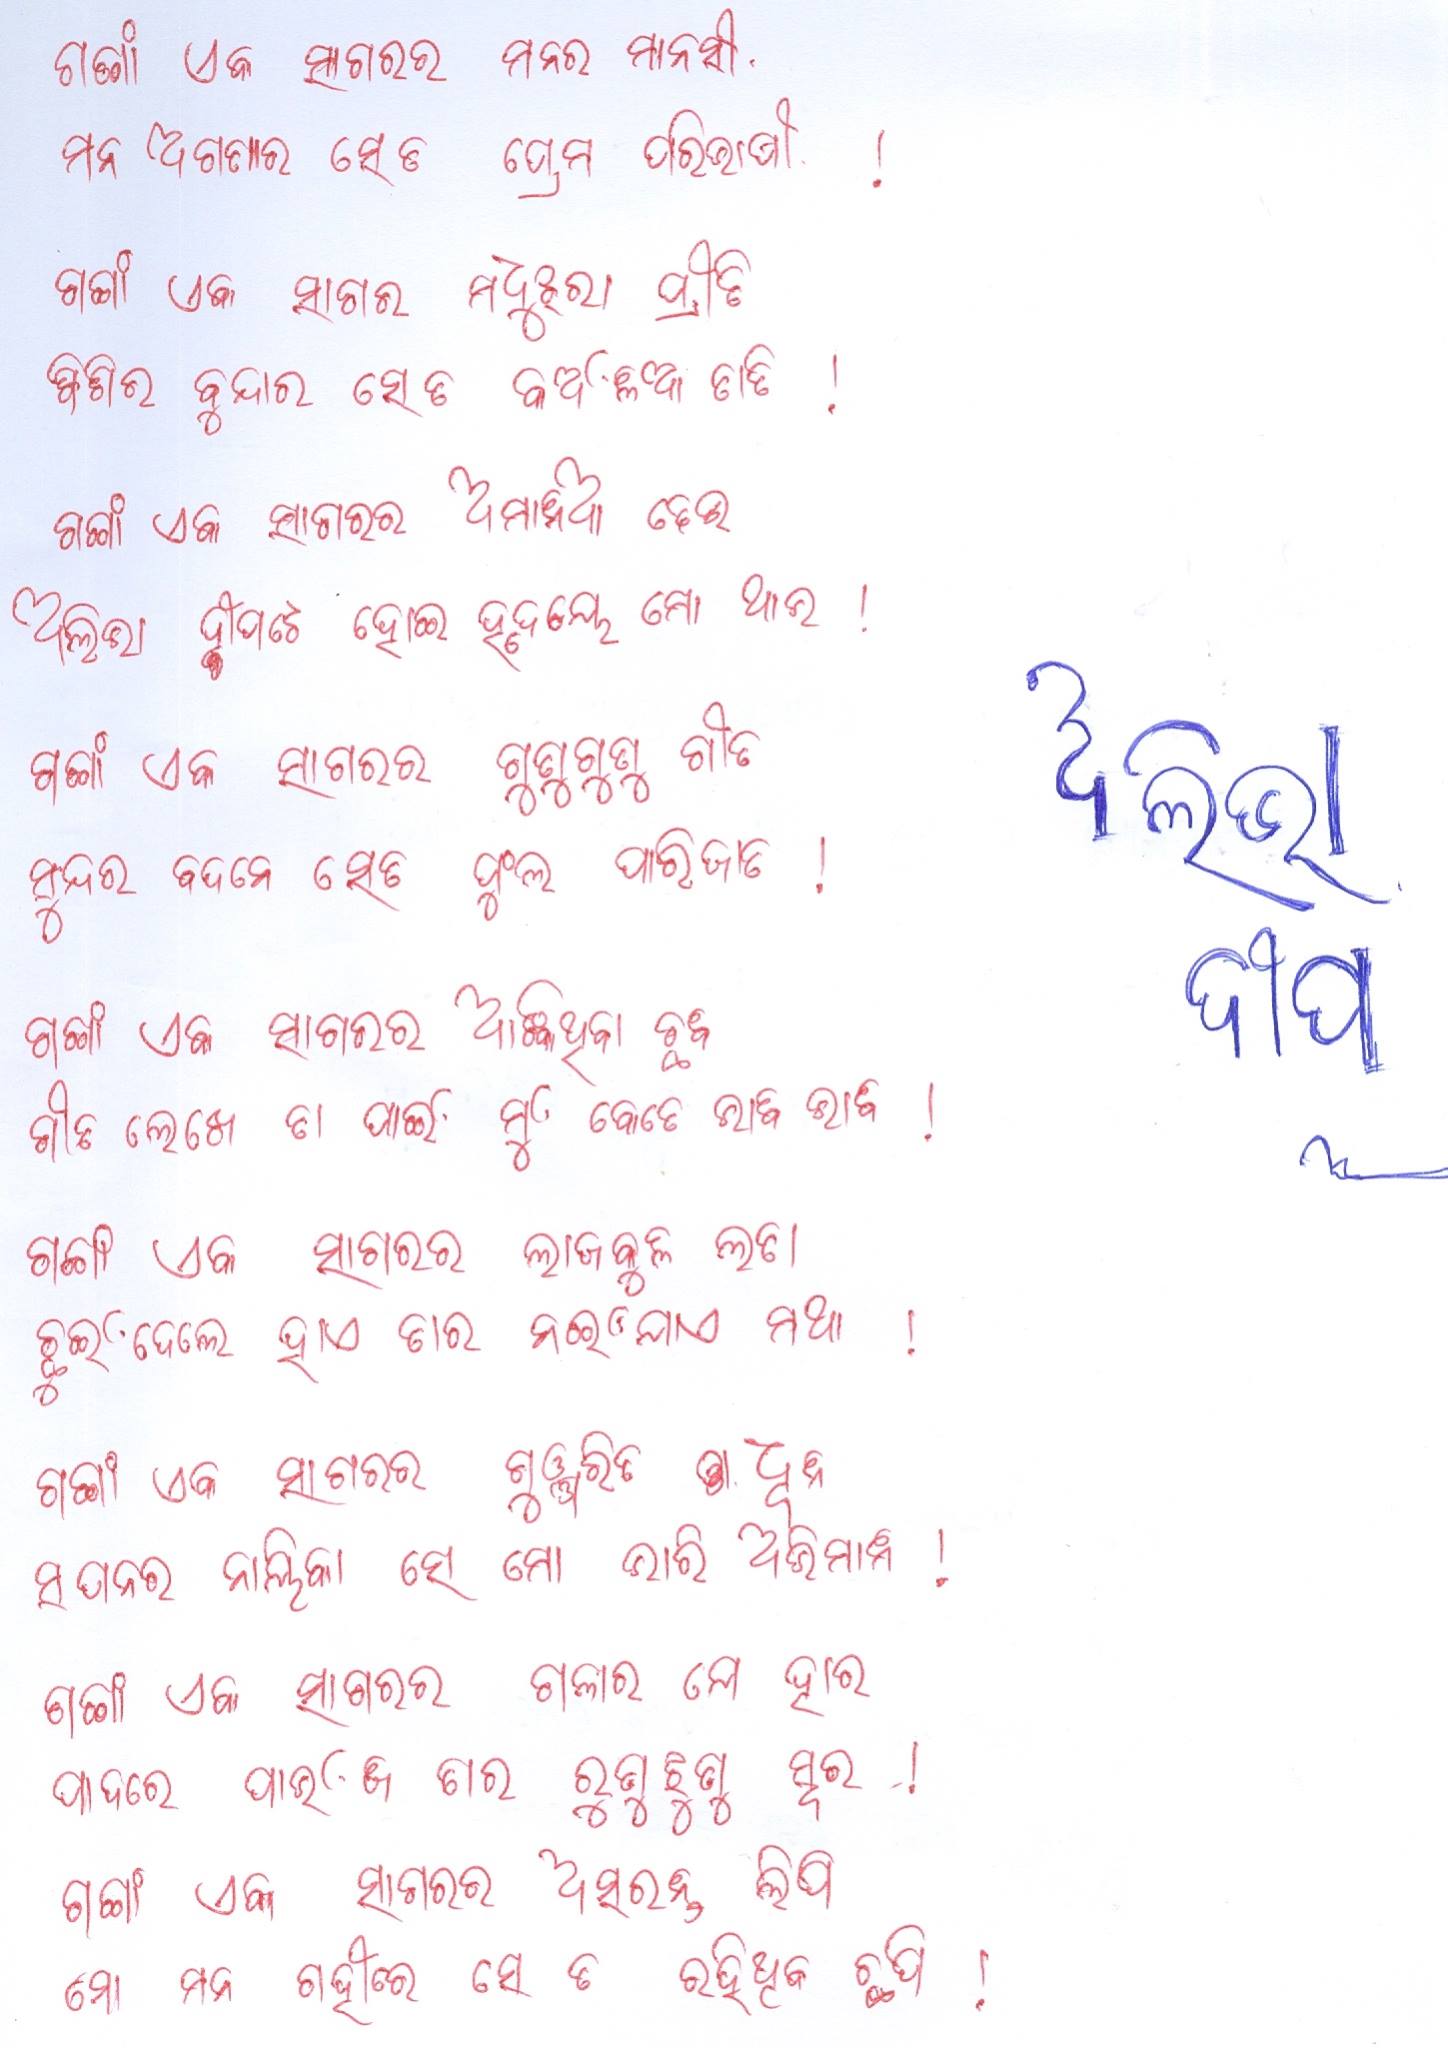 ଗଙ୍ଗା ଏକ ସାଗରର ମନର ମାନସୀ.
ମନ ଅଗଣାର ସେତ ପ୍ରେମ ପରିଭାଷୀ !
ଗଙ୍ଗା ଏକ ସାଗର ମଧୁଝରା ପ୍ରୀତି
ଶିଶିର ବୁନ୍ଦାର ସେତ କଅଁଳିଆ ତାତି !
ଗଙ୍ଗା ଏକ ସାଗରର ଅମାନିଆ ଢେଉ
ଅଲିଭା ଦ୍ୱୀପଟେ ହୋଇ ହୃଦୟେ ମୋ ଥାଉ !
ଗଙ୍ଗା ଏକ ସାଗରର ଗୁଣୁଗୁଣୁ ଗୀତ
ସୁନ୍ଦର ବଦନେ ସେତ ଫୁଲ ପାରିଜାତ !
ଗଙ୍ଗା ଏକ ସାଗରର ଆଙ୍କିଥିବା ଛବି
ଗୀତ ଲେଖେ ତା ପାଇଁ ମୁଁ କେତେ ଭାବି ଭାବି !
ଗଙ୍ଗା ଏକ ସାଗରର ଲାଜକୁଳି ଲତା
ଛୁଇଁଦେଲେ ହାଏ ତାର ନଇଁଯାଏ ମଥା !
ଗଙ୍ଗା ଏକ ସାଗରର ଗୁଞ୍ଜରିତ ଧ୍ୱନି
ସପନର ନାୟିକା ସେ ମୋ ଭାରି ଅଭିମାନି !
ଗଙ୍ଗା ଏକ ସାଗରର ଗଳାର ଯେ ହାର
ପାଦରେ ପାଉଁଜି ତାର ରୁଣୁଝୁଣୁ ସ୍ୱର !
ଗଙ୍ଗା ଏକ ସାଗରର ଅସରନ୍ତି ଲିପି
ମୋ ମନ ଗହୀରେ ସେ ତ ରହିଥିବ ଛପି !
ଅଲିଭା
ଦୀପ